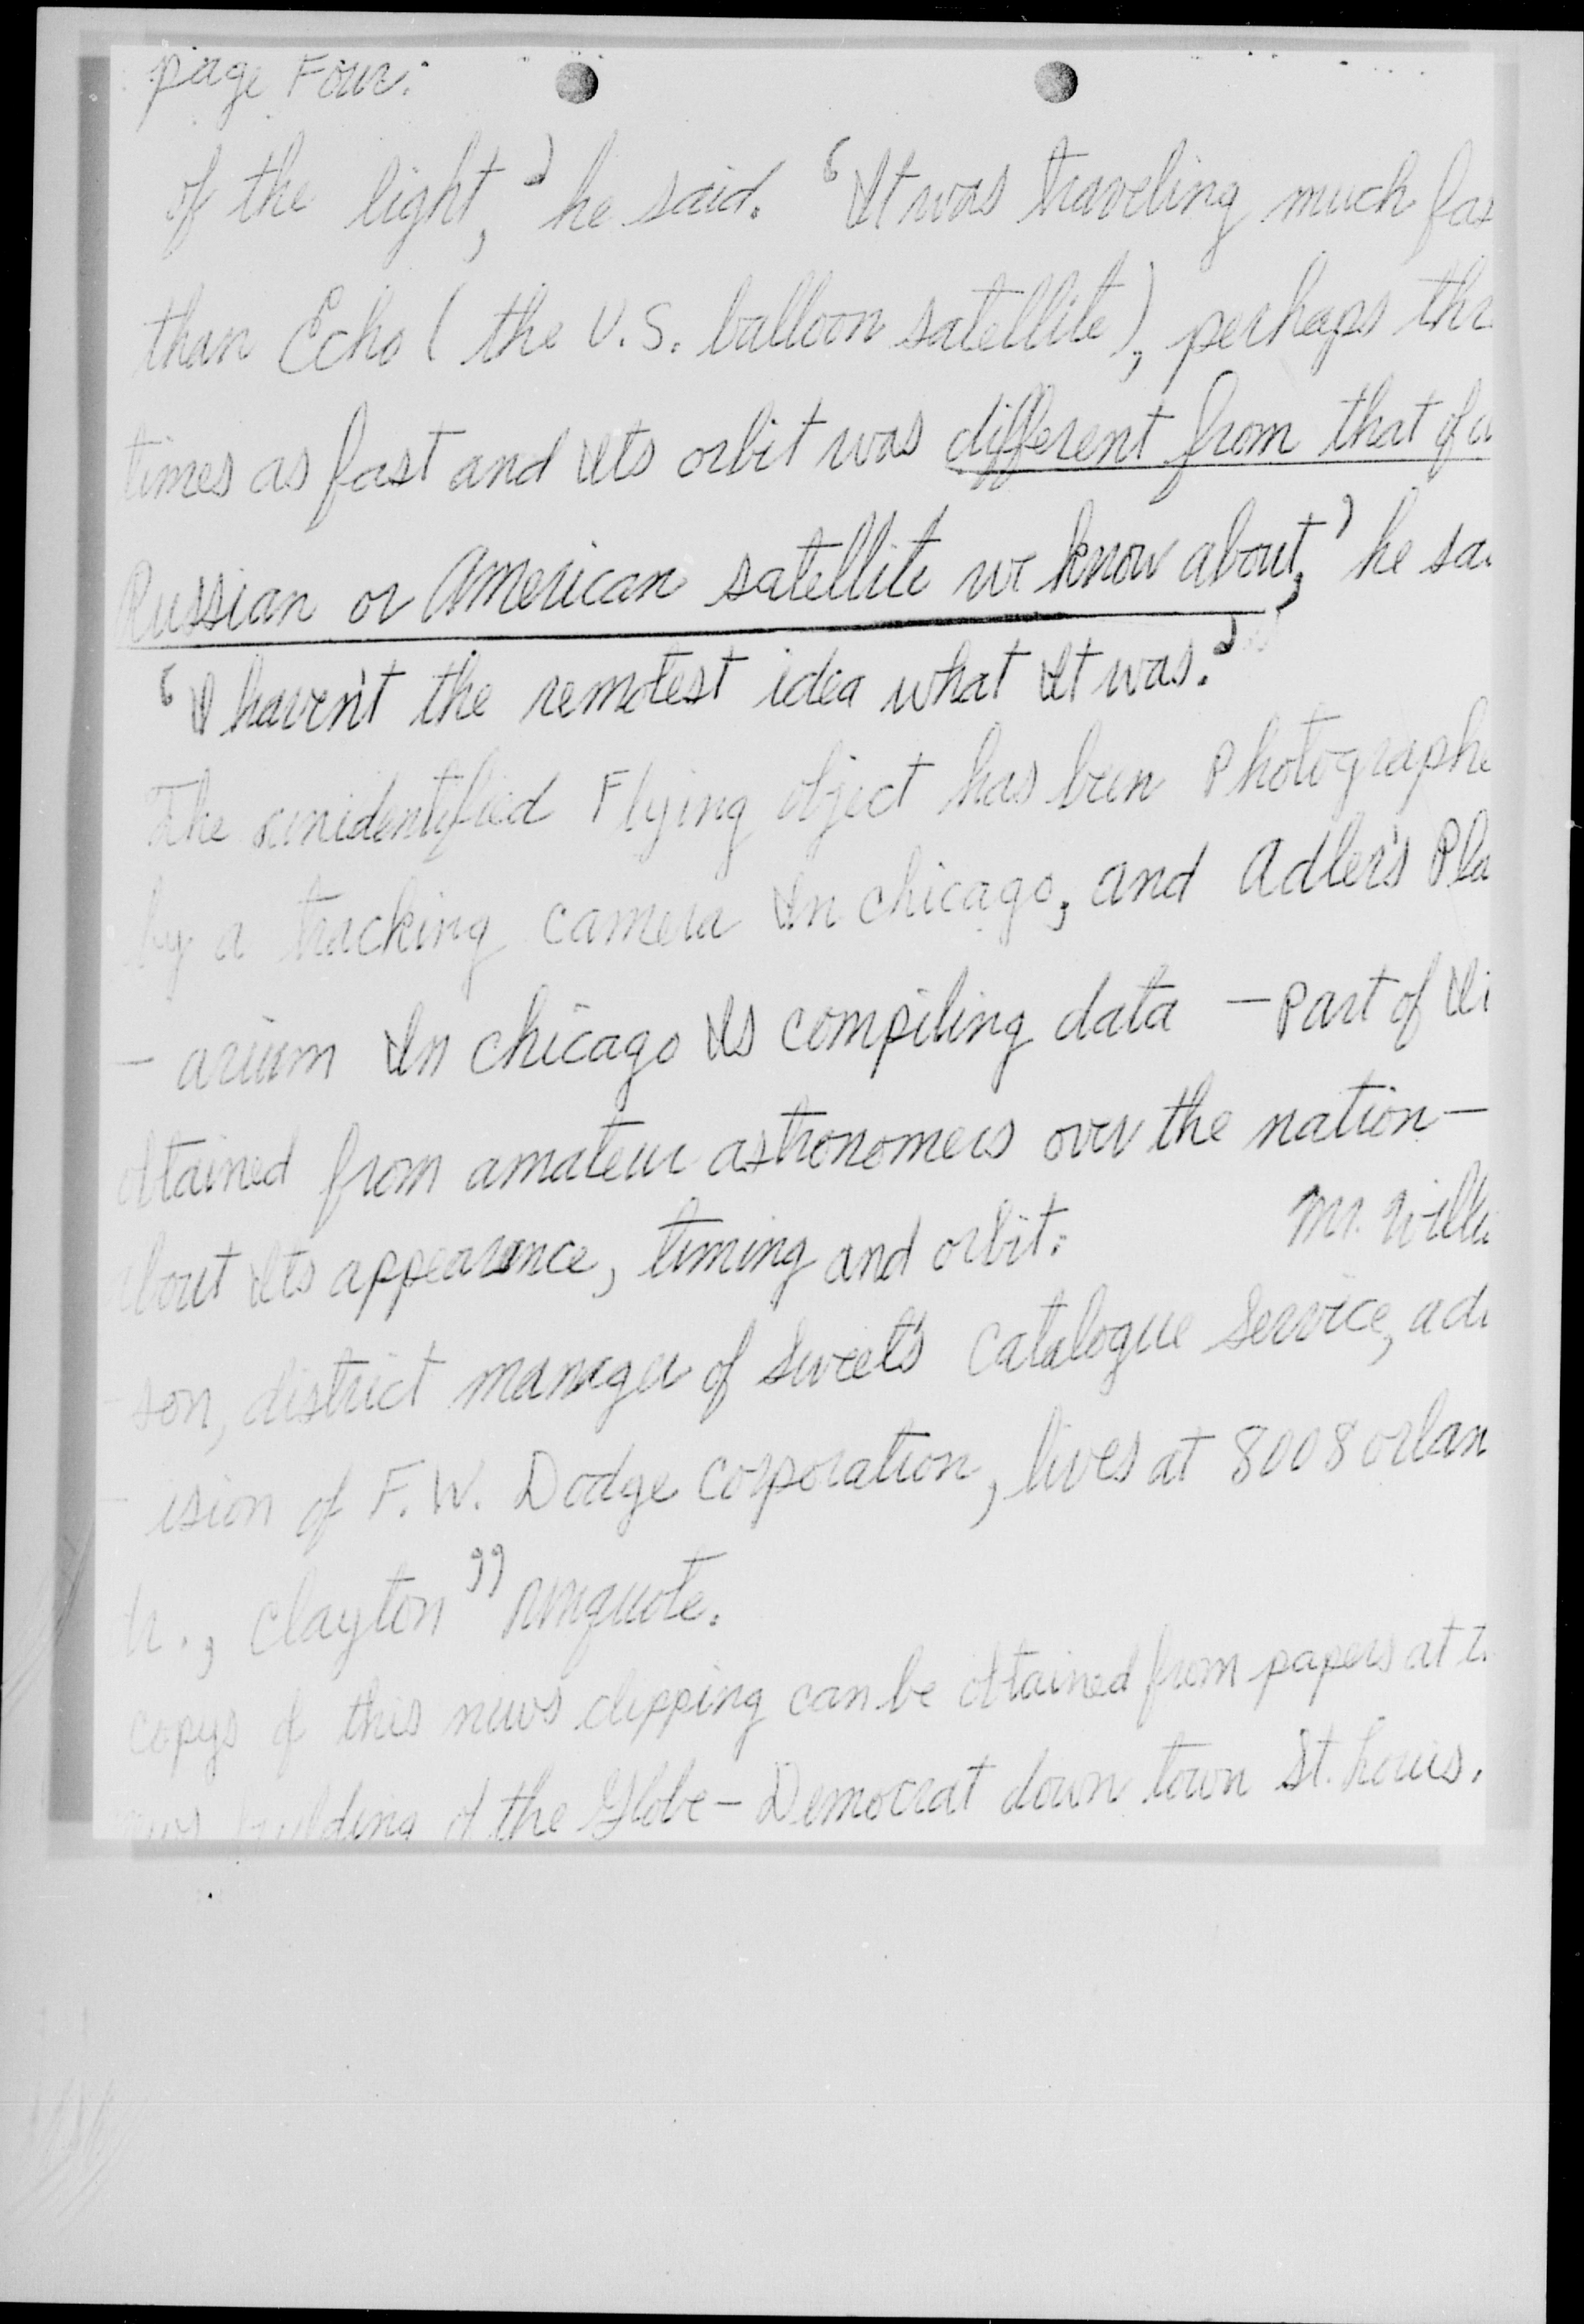 page Four:
of the light,' he said. 'It was traveling much fas
than Echo (the U.S. balloon satellite), perhaps thr
times as fast and Its orbit was different from that of a
Russian or American satellite we know about,' he sa
'I haven't the remotest idea what It was.'
The unidentified Flying object has been Photographe
by a tracking camera In chicago, and Adler's Pla
- arium In chicago Is compiling data - Part of It
obtained from amateur astronomers over the nation -
about Its appearance, timing and orbit. Mr. Willi
- son, district manager of Sweet's Catalogue Service, a di
- ision of F. W. Dodge Corporation, lives at 8008 orlan
dr., Clayton" unquote.
copys of this news clipping can be obtained from papers at t
news building of the Globe - Democrat down town St. Louis.